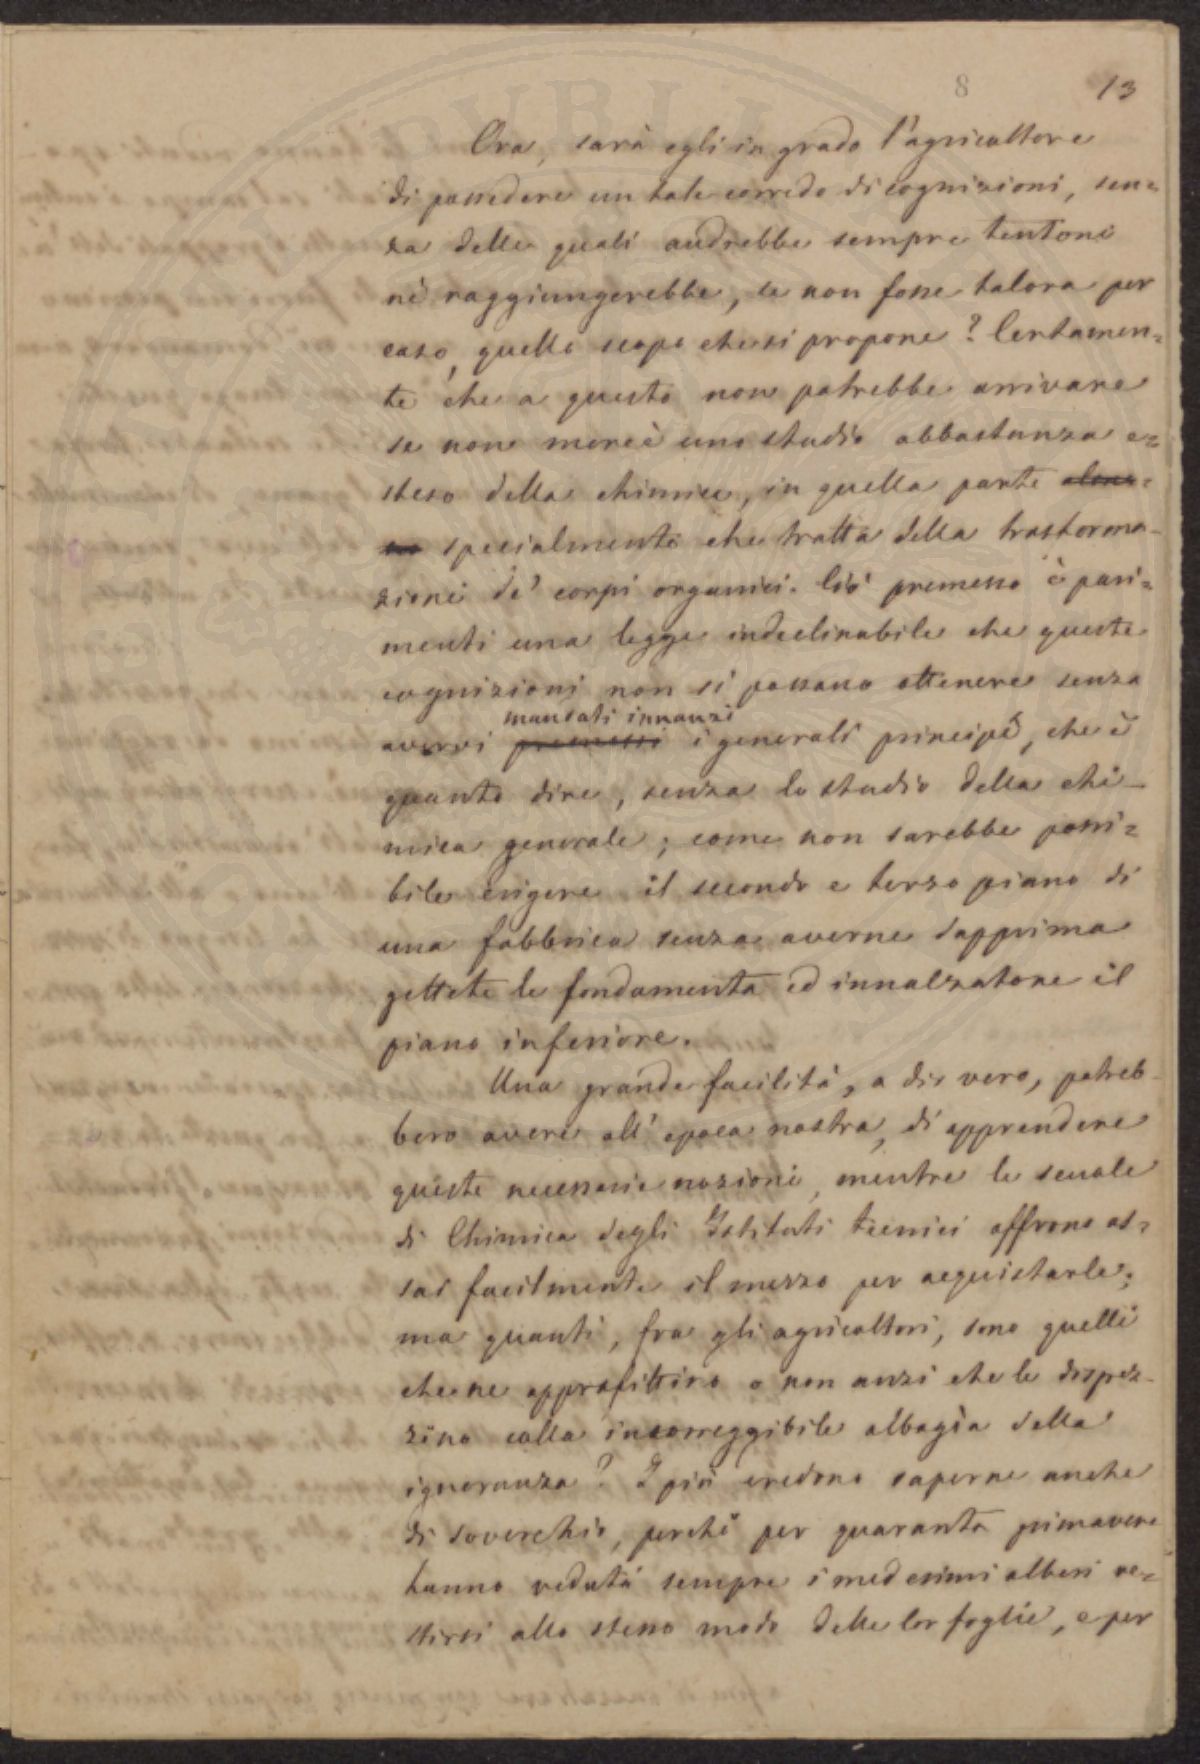 8 13
Ora, sarà egli in grado l'agricoltore
di possedere un tale corredo di cognizioni, sen=
za delle quali andrebbe sempre tentoni
nè raggiungerebbe, se non fosse talora per
caso, quello scopo che si propone? Certamen=
te che a questo non potrebbe arrivare
se non mercè uno studio abbastanza e=
steso della chimica, in quella parte
specialmente che tratta della trasforma-
zione de' corpi organici. Ciò premesso è pari=
menti una legge indeclinabile che queste
cognizioni non si possano ottenere senza
mandati innanzi
avervi premessi i generali principî, che è
quanto dire, senza lo studio della chi-
mica generale; come non sarebbe possi=
bile erigere il secondo e terzo piano di
una fabbrica senza averne dapprima
gettate le fondamenta ed innalzatone il
piano inferiore.
Una grande facilità, a dir vero, potreb-
bero avere all'epoca nostra, di apprendere
queste necessarie nozioni, mentre le scuole
di Chimica degli Istituti tecnici offrono as=
sai facilmente il mezzo per acquistarle;
ma quanti, fra gli agricoltori, sono quelli
che ne approfittino o non anzi che le disprez-
zino colla incorreggibile albagìa della
ignoranza? I più credono saperne anche
di soverchio, perchè per quaranta primavere
hanno veduto sempre i medesimi alberi ve=
stirsi allo stesso modo delle lor foglie, e per